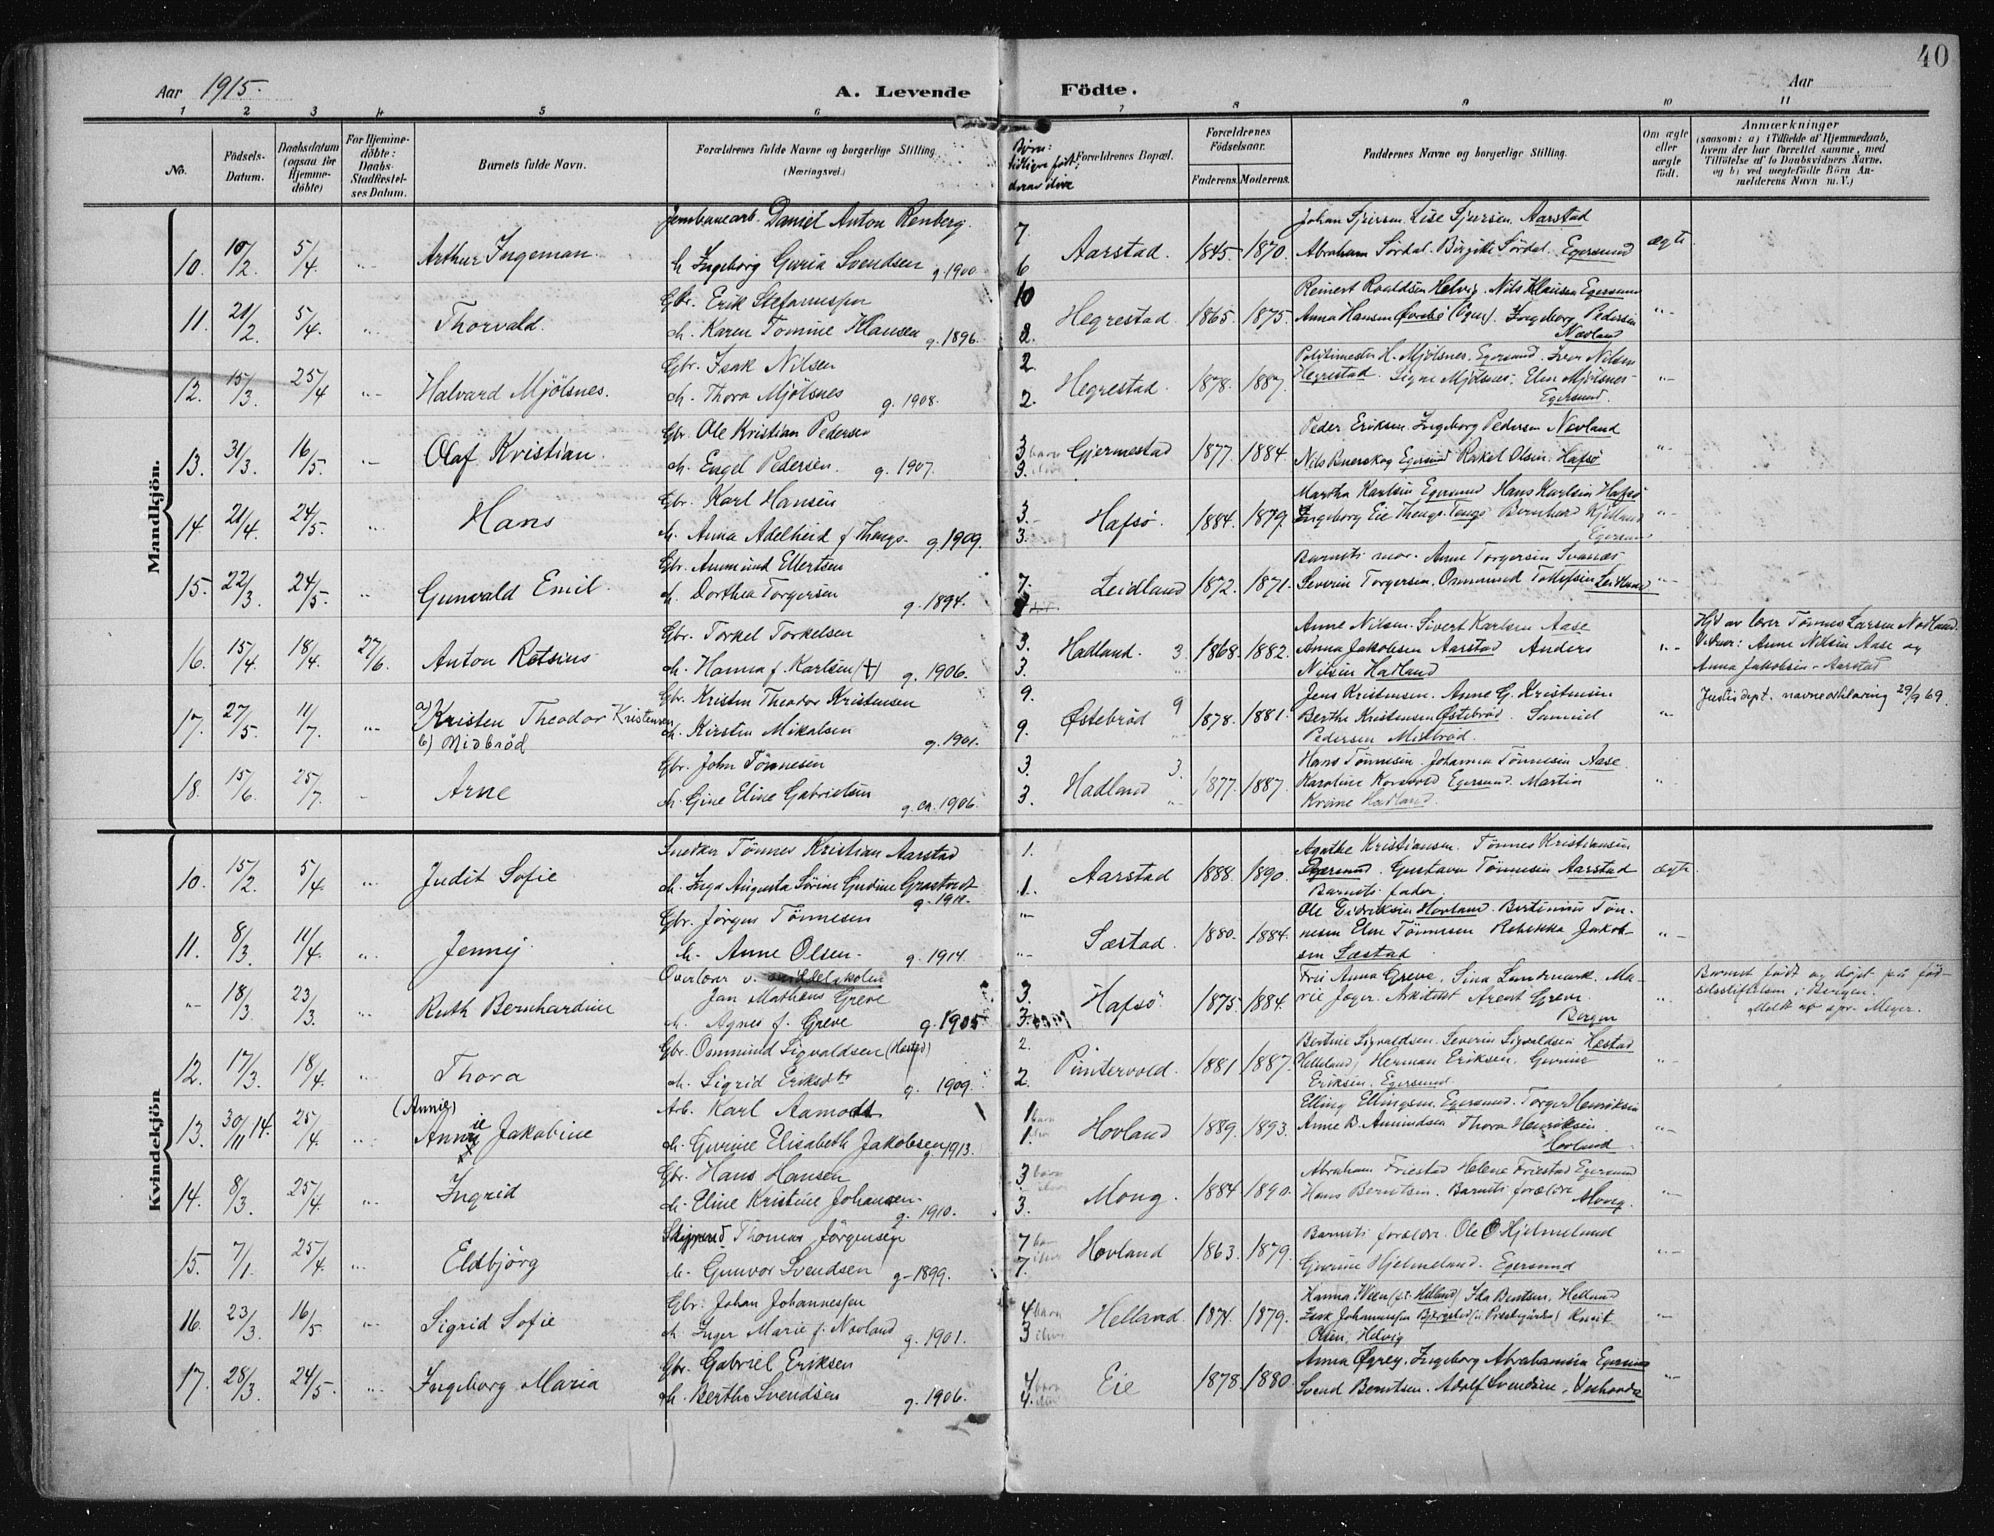 40
Aar 1915.
A. Levende Födte.
Aar
1 2 3 4 5 6 7 8 9 10 11
No.
Födsels-Datum.
Daabsdatum (ogsaa for Hjemme-döbte)
For Hjemme-döbte: Daabs-Stadfæstel-ses Datum.
Barnets fulde Navn.
Forældrenes fulde Navne og borgerlige Stilling (Næringsvei.)
Börn: tidligere født, derav ilive
Forældrenes Bopæl.
Forældrenes Födselsaar.
Faderens. Moderens.
Faddernes Navne og borgerlige Stilling.
Om ægte eller uægte födt.
Anmærkninger
(saasom: a) i Tilfælde af Hjemmedaab, hvem der har forrettet samme, med Tilföielse af to Daabsvidners Navne, og b) ved uægtefödte Börn An-melderens Navn m. V.)
Mandkjön.
Jernbanearb. Daniel Anton Renberg.
10. 10/2 5/4 "- Arthur Ingeman.
h. Ingeborg Guria Svendsen g. 1900
7 6 Aarstad. 1845. 1870.
Aarstad
Abraham Sørdal. Birgitte Sørdal. Egersund ægte
11. 21/2 5/4 "- Thorvald.
Gbr. Erik Stefanussen
h. Karen Tomine Klausen g. 1896.
10 8. Hegrestad. 1865. 1875.
Reinert Roaldsen Helvig. Nils Klausen Egersund
Anna Hansen (Ogna). Ingeborg Pedersen
Novland "-
12. 15/3 25/4 "- Halvard Mjölsnes.
Gbr. Isak Nilsen
h. Thora Mjölsnes g. 1908.
2. 2. Hegrestad. 1878. 1887.
Politimester H. Mjölsnes. Egersund. Iver Nilsen
Hegrestad. Signe Mjölsnes. Elen Mjölsnes
Egersund. "-
13. 31/3 16/5 "- Olaf Kristian.
Gbr. Ole Kristian Pedersen
h. Engel Pedersen. g. 1907.
3 barn 3. ilive Gjermestad 1877. 1884.
Peder Eriksen. Ingeborg Pedersen Novland
Egersund Rakel Olsen. Hafsö "-
14. 21/4 24/5 "- Hans
Gbr. Karl Hansen
h. Anna Adelheid f. Thengs. g. 1909.
3. 3. Hafsö. 1884. 1879.
Martha Karlsen Egersund Hans Karlsen Hafsö
Ingeborg Eie Thengs. Tengs Bernhard Kjelland
Egersund "-
15. 22/3 24/5 "- Gunvald Emil.
Gbr. Ammund Ellertsen
h. Dorthea Torgersen g. 1894.
7. Leidland 1872. 1871.
Barnets mor. Anne Torgersen Svanæs
Severin Torgersen. Osmund Tollefsen Leidland "-
16. 15/4 18/4 27/6. Anton Retsius
Gbr. Torkel Torkelsen
h. Hanna f. Karlsen (†) g. 1906.
3. 3. Hadland. 3 1868. 1882.
Anne Nilsen. Sivert Karlsen Aase
Anna Jakobsen Aarstad Anders
Nilsen Hadland "-
Hjd av lærer Tønnes Larsen Nodland.
Vidner: Anne Nilsen Aase og
Anna Jakobsen - Aarstad
17. 27/5 11/7. "- a) Kristen Theodor Kristensen
b) Midbrød
Gbr. Kristen Theodor Kristensen
h. Kirsten Mikalsen g. 1901.
9. 9. Østebrød 9 1878. 1881.
Jens Kristensen. Anne G. Kristensen
Berthe Kristensen Østebrød. Samuel
Pedersen Midbrød. "-
Justisdept. navneerklæring 29/9 69.
18. 15/6 25/7. - Arne
Gbr. John Tønnesen
h. Gine Eline Gabrielsen g. ca. 1906.
3. 3. Hadland 3. 1877. 1887.
Hans Tønnesen. Johanna Tønnesen Aase.
Karoline Egersund. Martin
Hadland.
Kvindekjön
10. 15/2 5/4 "- Judit Sofie
Snekker Tønnes Kristian Aarstad
h. Inga Augusta Sørine Gudine
1. 1. Aarstad 1888. 1890.
Agathe Kristiansen. Tønnes Kristiansen
Egersund. Gustava Tønnesen Aarstad
Barnets fader. ægte
11. 8/3 11/4 "- Jenny.
Gbr. Jörgen Tönnesen
h. Anne Olsen. g. 1914.
"- "- Sæstad. 1880. 1884.
Ole Hovland. Bertinius Tøn-
nesen Elen Tønnesen Rebekka Jakob-
sen Sæstad "-
"- 18/3 23/3. "- Ruth Bernhardine
Overlærer v. middelskolen
Jan Mathias Greve
h. Agnes f. Greve g. 1905
3. 3. Hafsö 1875 1884.
Frei Anna Greve, Sina Lundmark. Ma-
rie Jæger. Arkitekt Arent Greve.
Bergen "-
Barnet født og døpt på fød-
selsstiftelsen i Bergen.
Meldt av spr. Meyer.
12. 17/3. 18/4 "- Thora
Gbr. Osmund Sigvaldsen (Hæstad)
h. Sigrid Eriksdtr g. 1909.
2. 2. Pintervold. 1881 1887.
Bertine Sigvaldsen. Severin Sigvaldsen Hæstad
(Helleland) Herman Eriksen. Gurine
Eriksen. Egersund. "-
13. 30/11 14. 25/4 "- (Annie)
Annie Jakobine
Arb. Karl Aamodt
h. Gurine Elisabeth Jakobsen g. 1913.
1 barn 1. ilive Hovland 1889. 1893.
Elling Ellingsen. Egersund. Torger Henriksen
Anne B. Amundsen Thora Henriksen.
Hovland "-
14. 8/3. 25/4 "- Ingrid
Gbr. Hans Hansen
h. Eline Kristine Johansen g. 1910.
3 barn 3. ilive Mong. 1884 1890.
Abraham Friestad Helene Friestad Egersund
Hans Berntsen. Barnets forældre Mong. "-
15. 7/1. 25/4 "- Eldbjörg
Thomas Jörgensen
h. Gunvor Svendsen g. 1899.
7 7. Hovland 1863. 1879.
Barnets forældre. Ole O Hjelmeland
Gurine Hjelmeland. Egersund "-
16. 23/3. 16/5 "- Sigrid Sofie
Gbr. Johan Johannessen
h. Inger Marie f. Novland g. 1901.
4 barn 3 ilive Helland. 1874. 1879.
Ida Bentsen, Helland
Isak Johannessen Knut
Olsen, Helvig "-
17. 28/3 24/5. "- Ingeborg Maria
Gbr. Gabriel Eriksen
h. Berthe Svendsen g. 1906.
4 barn 4. ilive Eie 1878 1880.
Anna Øgrey. Ingeborg Abrahamsen Egersund
Svend Berntsen. Adolf Svendsen, "-